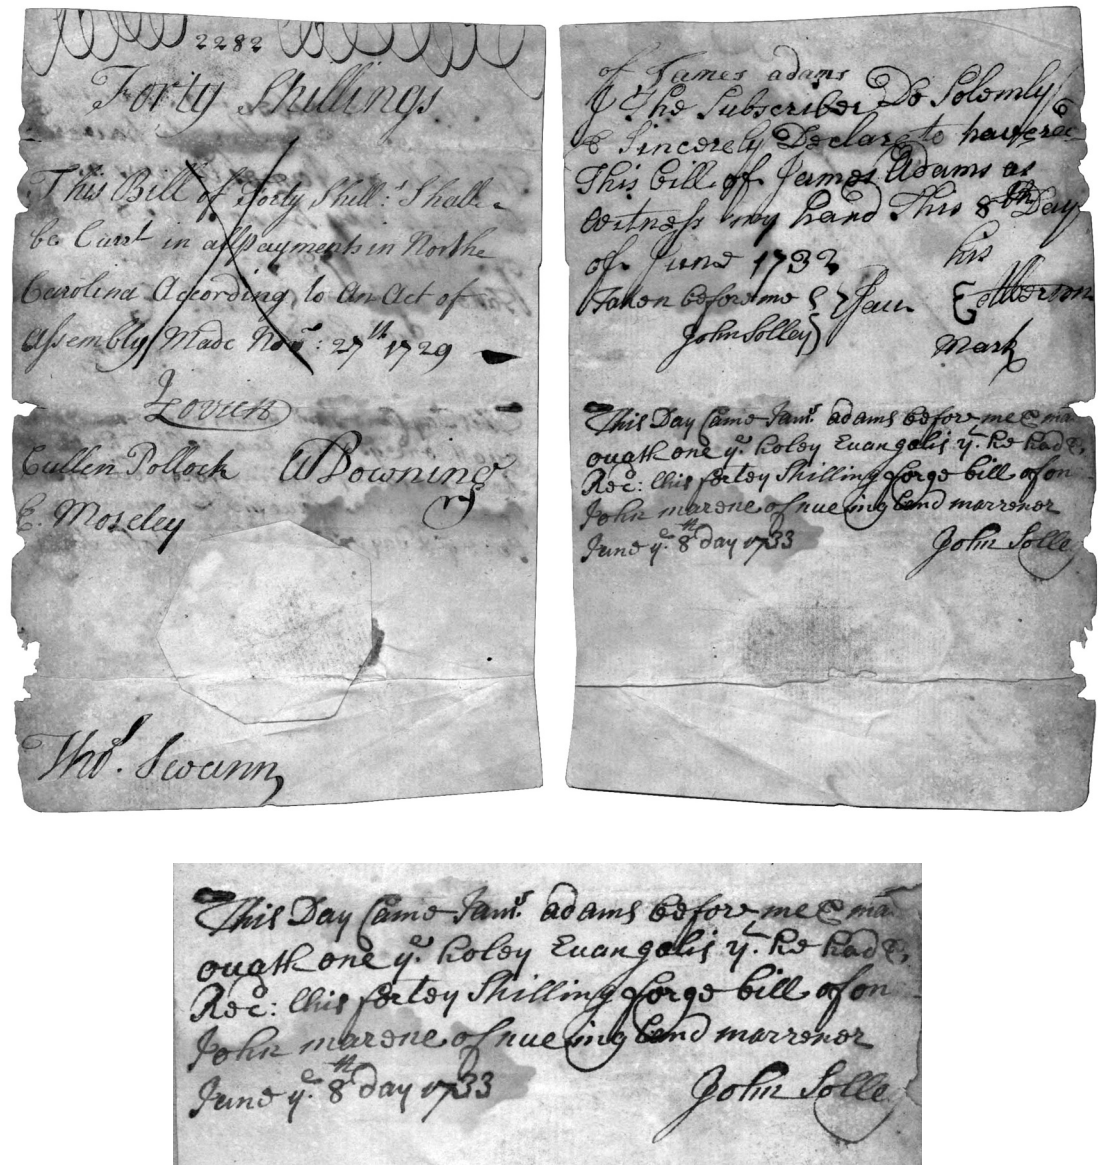 2282
Forty Shillings
This Bill of Forty Shills: Shall
be Curt in all payments in North
Carolina According to An Act of
Assembly Made Novr: 27th 1729
Lovick
Cullen Pollock WDowning
E. Moseley
Thos. Swann
of James adams
I The Subscriber Do Solemly
& Sincerely Declare to have
This bill of James Adams as
witness my hand This 8th Day
of June 1732 his
Taken before me Pau E
John Solley Mark
This Day Came Jams adams before me & ma
ouath one ye holey Evangelis yt he had
Rec: this fortey Shilling forge bill of on
John marene of nue ingland marrener
June ye 8th day 1733 John Solle
This Day Came Jams adams before me & ma
ouath one ye holey Evangelis yt he had
Rec: this fortey Shilling forge bill of on
John marene of nue ingland marrener
June ye 8th day 1733 John Solle